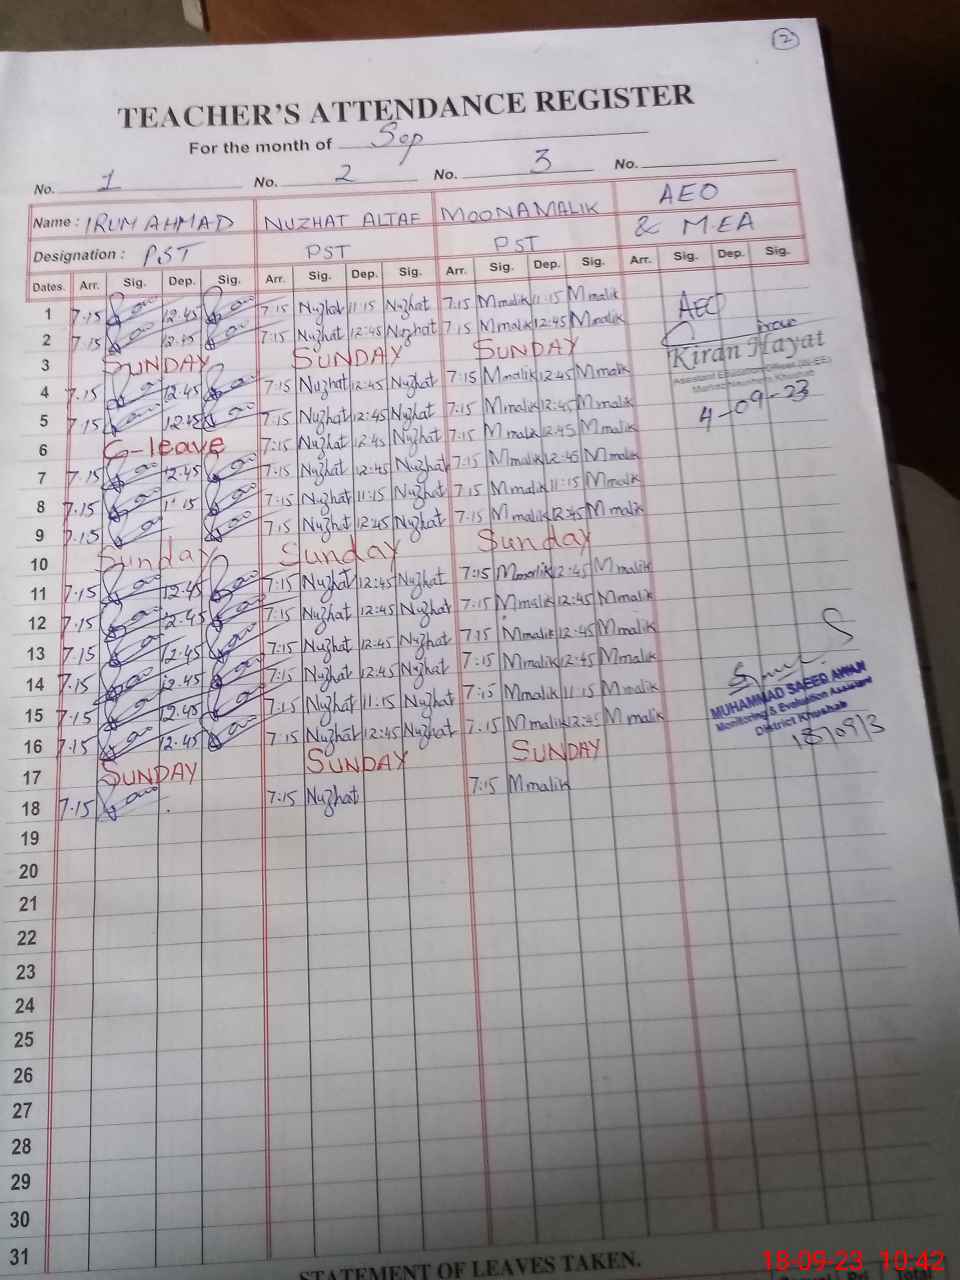 2
TEACHER'S ATTENDANCE REGISTER
For the month of Sep
No. 1 No. 2 No. 3 No.
Name : IRUM AHMAD NUZHAT ALTAF MOONA MALIK AEO
Designation : PST PST PST & M.EA
Dates. Arr. Sig. Dep. Sig. Arr. Sig. Dep. Sig. Arr. Sig. Dep. Sig. Arr. Sig. Dep. Sig.
1 7.15 12.45 7:15 Nuzhat 11:15 Nuzhat 7:15 Mmalik 11:15 Mmalik AEO
2 7.15 12.45 7:15 Nuzhat 12:45 Nuzhat 7:15 Mmalik 12:45 Mmalik
3 SUNDAY SUNDAY SUNDAY Kiran Hayat
4 7.15 12.45 7:15 Nuzhat 12:45 Nuzhat 7:15 Mmalik 12:45 Mmalik
5 7.15 12.45 7:15 Nuzhat 12:45 Nuzhat 7:15 Mmalik 12:45 Mmalik 4-09-23
6 C-leave 7:15 Nuzhat 12:45 Nuzhat 7:15 Mmalik 12:45 Mmalik
7 7.15 12.45 7:15 Nuzhat 12:45 Nuzhat 7:15 Mmalik 12:45 Mmalik
8 7.15 11.15 7:15 Nuzhat 11:15 Nuzhat 7:15 Mmalik 11:15 Mmalik
9 7.15 7:15 Nuzhat 12:45 Nuzhat 7:15 Mmalik 12:45 Mmalik
10 Sunday Sunday Sunday
11 7.15 12.45 7:15 Nuzhat 12:45 Nuzhat 7:15 Mmalik 12:45 Mmalik
12 7.15 12.45 7:15 Nuzhat 12:45 Nuzhat 7:15 Mmalik 12:45 Mmalik
13 7.15 12.45 7:15 Nuzhat 12:45 Nuzhat 7:15 Mmalik 12:45 Mmalik
14 7.15 12.45 7:15 Nuzhat 12:45 Nuzhat 7:15 Mmalik 12:45 Mmalik
15 7.15 12.45 7:15 Nuzhat 11.15 Nuzhat 7:15 Mmalik 11:15 Mmalik MUHAMMAD SAEED AWAN
Monitoring & Evaluation Assistant
District Khushab
16 7.15 12.45 7:15 Nuzhat 12:45 Nuzhat 7:15 Mmalik 12:45 Mmalik
17 SUNDAY SUNDAY SUNDAY
18 7.15 7:15 Nuzhat 7:15 Mmalik
19
20
21
22
23
24
25
26
27
28
29
30
31
STATEMENT OF LEAVES TAKEN.
18-09-23 10:42